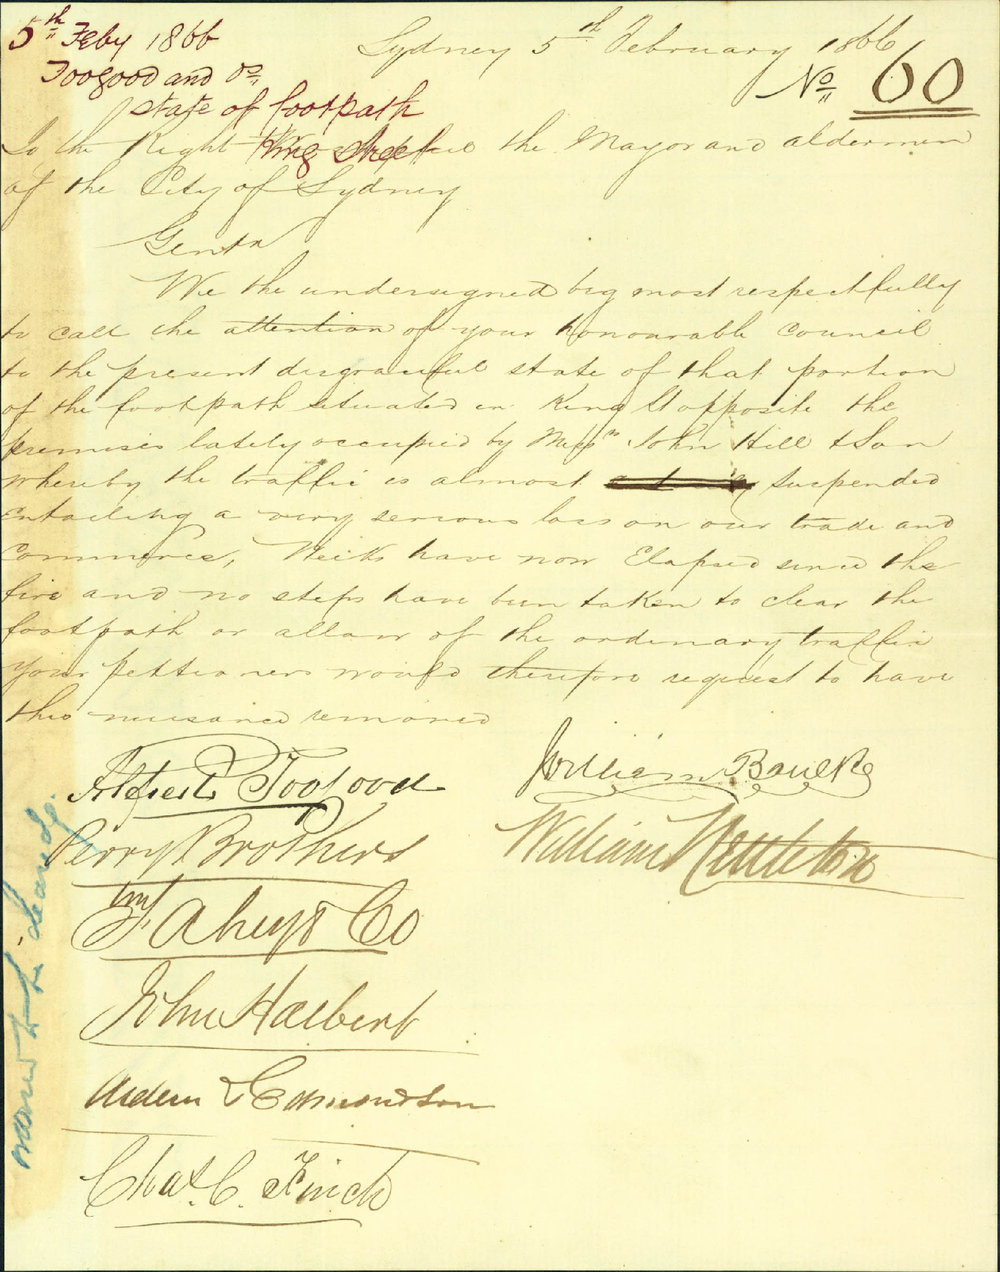 5th Feby 1866
Toogood and Ors
state of footpath
King Street
Sydney 5th February 1866
No 60
To the Right the Mayor and aldermen
of the City of Sydney
Gentn
We the undersigned beg most respectfully
to call the attention of your honourable Council
to the present disgraceful state of that portion
of the footpath situated in King St opposite the
premises lately occupied by Messrs John Hill & Son
whereby the traffic is almost suspended
entailing a very serious loss on our trade and
commerce, Weeks have now Elapsed since the
fire and no steps have been taken to clear the
footpath or allow of the ordinary traffic
your petitioners would therefore request to have
this nuisance removed
Alfred Toogood
William Baulke
Perry Brothers
William Nettleton
& Co
John Halbert
Ardern & Edmondson
Chas. C. Finch
to be cleared.